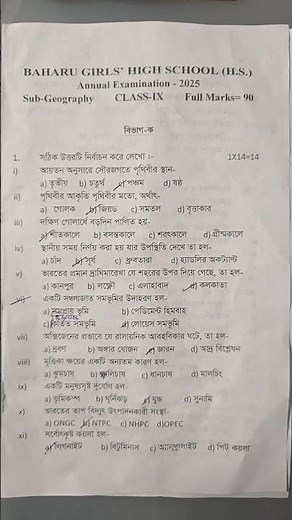 BAHARU GIRLS' HIGH SCHOOL (H.S.)
Annual Examination - 2025
Sub-Geography CLASS-IX Full Marks= 90
বিভাগ-ক
1. সঠিক উত্তরটি নির্বাচন করে লেখো :- 1X14=14
i) আয়তন অনুসারে সৌরজগতে পৃথিবীর স্থান-
a) তৃতীয় b) চতুর্থ c) পঞ্চম d) ষষ্ঠ
ii) পৃথিবীর আকৃতি পৃথিবীর মতো, অর্থাৎ-
a) গোলক b) জিয়ড c) সমতল d) বৃত্তাকার
iii) দক্ষিণ গোলার্ধে বড়দিন পালিত হয়-
a) শীতকালে b) বসন্তকালে c) শরৎকালে d) গ্রীষ্মকালে
iv) স্থানীয় সময় নির্ণয় করা হয় যার উপস্থিতি দেখে তা হল-
a) চাঁদ b) সূর্য c) ধ্রুবতারা d) হ্যাডলির অকট্যান্ট
v) ভারতের প্রমান দ্রাঘিমারেখা যে শহরের উপর দিয়ে গেছে, তা হল-
a) কানপুর b) লক্ষ্ণৌ c) এলাহাবাদ d) কলকাতা
vi) একটি সঞ্চয়জাত সমভূমির উদাহরণ হল-
a) সমপ্রায় ভূমি b) পেডিমেন্ট হিমবাহ
c) কর্তিত সমভূমি d) লোয়েস সমভূমি
vii) অক্সিজেনের প্রভাবে যে রাসায়নিক আবহবিকার ঘটে, তা হল-
a) দ্রবণ b) অঙ্গার যোজন c) জারন d) আর্দ্র বিশ্লেষন
viii) মৃত্তিকা ক্ষয়ের একটি অন্যতম কারণ হল-
a) ঝুমচাষ b) ফালিচাষ c) ধানচাষ d) মালচিং
ix) একটি মনুষ্যসৃষ্ট দুর্যোগ হল-
a) ভূমিকম্প b) ঘূর্নিঝড় c) যুদ্ধ d) সুনামি
x) ভারতের তাপ বিদ্যুৎ উৎপাদনকারী সংস্থা-
a) ONGC b) NTPC c) NHPC d)OPEC
xi) সর্বোৎকৃষ্ট কয়লা হল-
a) লিগনাইট b) বিটুমিনাস c) অ্যানথ্রাসাইট d) পিট্ কয়লা